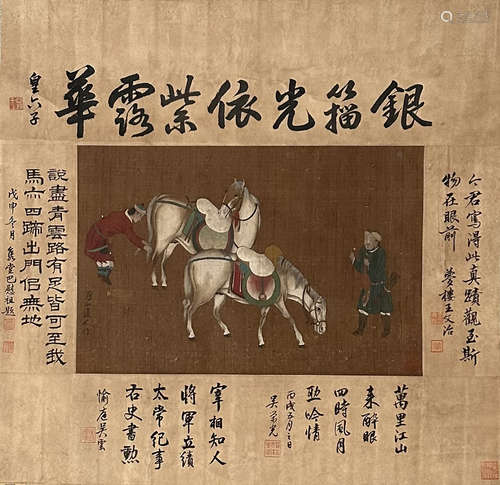 銀光依紫露華
皇六子
今君寫得此真蹟觀至斯
物在眼前 夢樓王文治
說盡青雲路有足皆可至我
馬亦四蹄出門佀無地
戊申冬月 雋堂巴慰祖題
萬里江山
來醉眼
四時風月
助吟情
丙戌五月日
吳榮光
宰相知人
將軍立績
太常紀事
右史書勳
愉庭吳雲